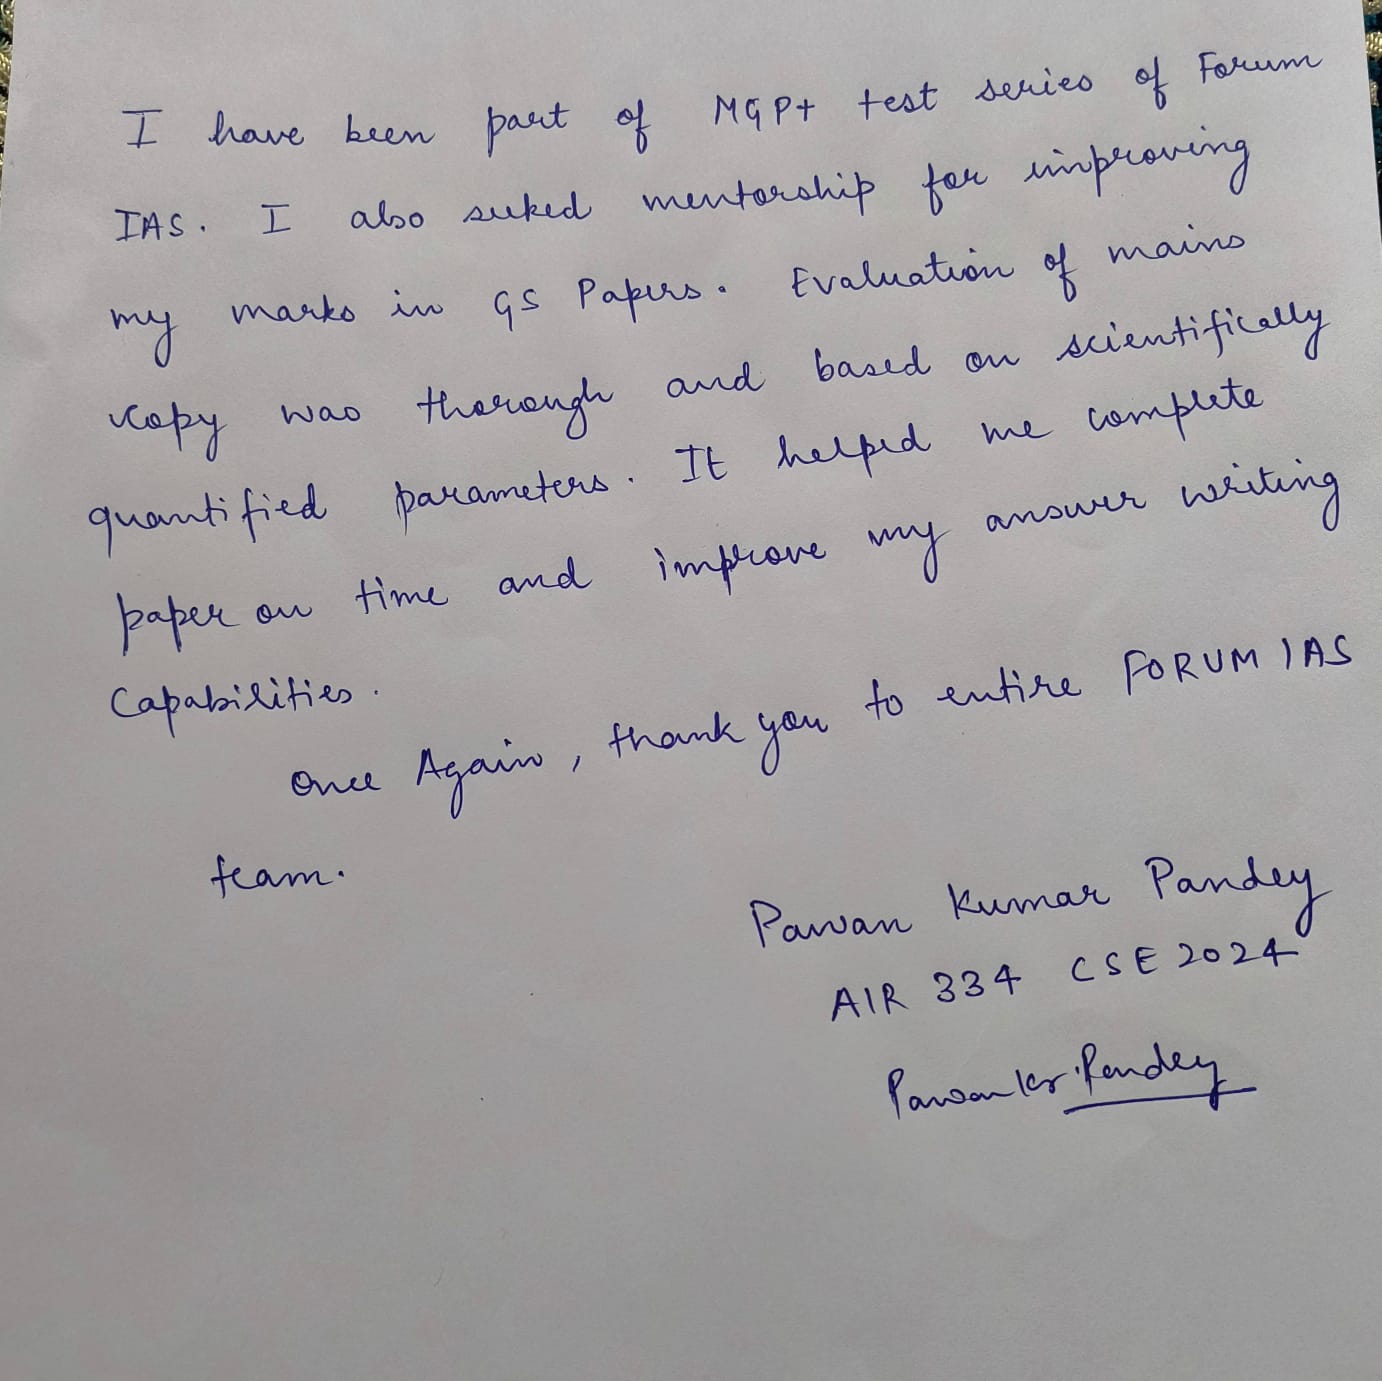 I have been part of MGP+ test series of Forum
IAS. I also seeked mentorship for improving
my marks in GS Papers. Evaluation of mains
copy was thorough and based on scientifically
quantified parameters. It helped me complete
paper on time and improve my answer writing
Capabilities.
Once Again, thank you to entire FORUM IAS
team.
Pawan Kumar Pandey
AIR 334 CSE 2024
Pawan Kr. Pandey